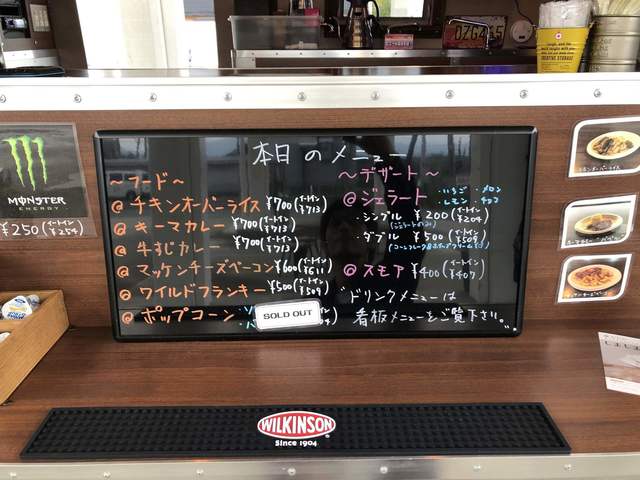 DZG 4 5
MONSTER
ENERGY
¥250(イートイン ¥254)
本日のメニュー
〜フード〜
@ チキンオーバーライス ¥700(イートイン ¥713)
@ キーマカレー ¥700(イートイン ¥713)
@ 牛すじカレー ¥700(イートイン ¥713)
@ マッケンチーズベーコン ¥600(イートイン ¥611)
@ ワイルドフランキー ¥500(イートイン ¥509)
@ ポップコーン
SOLD OUT
〜デザート〜
@ ジェラート ・いちご ・メロン
・レモン ・チョコ
・シンプル ¥200(イートイン ¥204)
・ダブル ¥500(イートイン ¥509)
@ スモア ¥400(イートイン ¥407)
ドリンクメニューは
看板メニューをご覧下さい。
チキンオーバーライス
WILKINSON
Since 1904